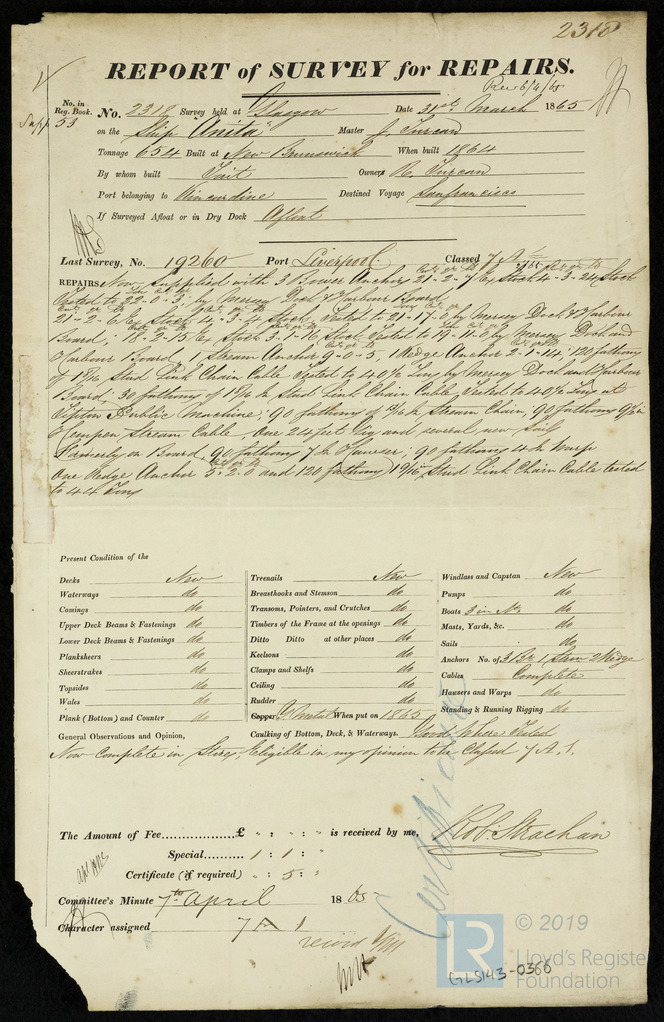 2318
REPORT of SURVEY for REPAIRS.
Rec 6/4/65
No. in Reg. Book.
Supp 53
No. 2318 Survey held at Glasgow Date 31st March 1865
on the Ship "Anita" Master J. Turcan
Tonnage 654 Built at New Brunswick When built 1864
By whom built Tait Owners R. Turcan
Port belonging to Kincardine Destined Voyage San francisco
If Surveyed Afloat or in Dry Dock Afloat
Last Survey, No. 19260 Port Liverpool Classed 7 A 1
REPAIRS Now supplied with 3 Bower Anchors 21-2-7 Ex Stock 4-3-24 Stock
Tested to 22-0-3; by Mersey Dock & Harbour Board,
21-2-6 Ex Stock 4-3-4 Stock, Tested to 21-17-0 by Mersey Dock & Harbour
Board; 18-2-15 Ex Stock 3-1-16 Stock Tested to 19-11-0 by Mersey Dock and
Harbour Board, 1 Stream Anchor 9-0-5, 1 Kedge Anchor 2-1-14; 120 fathoms
of 1 7/16 Stud Link Chain Cable Tested to 40 1/2 Tons by Mersey Dock and Harbour
Board, 30 fathoms of 1 7/16 in Stud Link Chain Cable Tested to 40 1/2 Tons at
Tipton Public Machine, 90 fathoms of 15/16 in Stream Chain, 90 fathoms 9 1/2 in
Hempen Stream Cable, One 24 feet Gig and, several new Sails
Formerly on Board, 90 fathoms 7 in Hawser, 90 fathoms 4 in Warp
One Kedge Anchor 5-2-0 and 120 fathoms 1 9/16 Stud Link Chain Cable tested
to 44 Tons
Present Condition of the
Decks New
Waterways do
Comings do
Upper Deck Beams & Fastenings do
Lower Deck Beams & Fastenings do
Planksheers do
Sheerstrakes do
Topsides do
Wales do
Plank (Bottom) and Counter do
Treenails New
Breasthooks and Stemson do
Transoms, Pointers, and Crutches do
Timbers of the Frame at the openings do
Ditto Ditto at other places do
Keelsons do
Clamps and Shelfs do
Ceiling do
Rudder do
Copper Y. Metal When put on 1865
Caulking of Bottom, Deck, & Waterways. Good where Tested
Windlass and Capstan New
Pumps do
Boats 3 in No. do
Masts, Yards, &c. do
Sails do
Anchors No. of 3 Br 1 Stm 2 Kedge
Cables Complete
Hawsers and Warps do
Standing & Running Rigging do
General Observations and Opinion,
Now Complete in Stores, Eligible in my opinion to be Classed 7 A. 1.
The Amount of Fee................£ " : " : " is received by me,
Robt. Strachan
Special.......... 1 : 1 : "
Certificate (if required) " : 5 : "
Certificate
Committee's Minute 7th April 1865
Character assigned 7 A 1
record
LR
© 2019
Lloyd's Register
Foundation
GLS143-0366